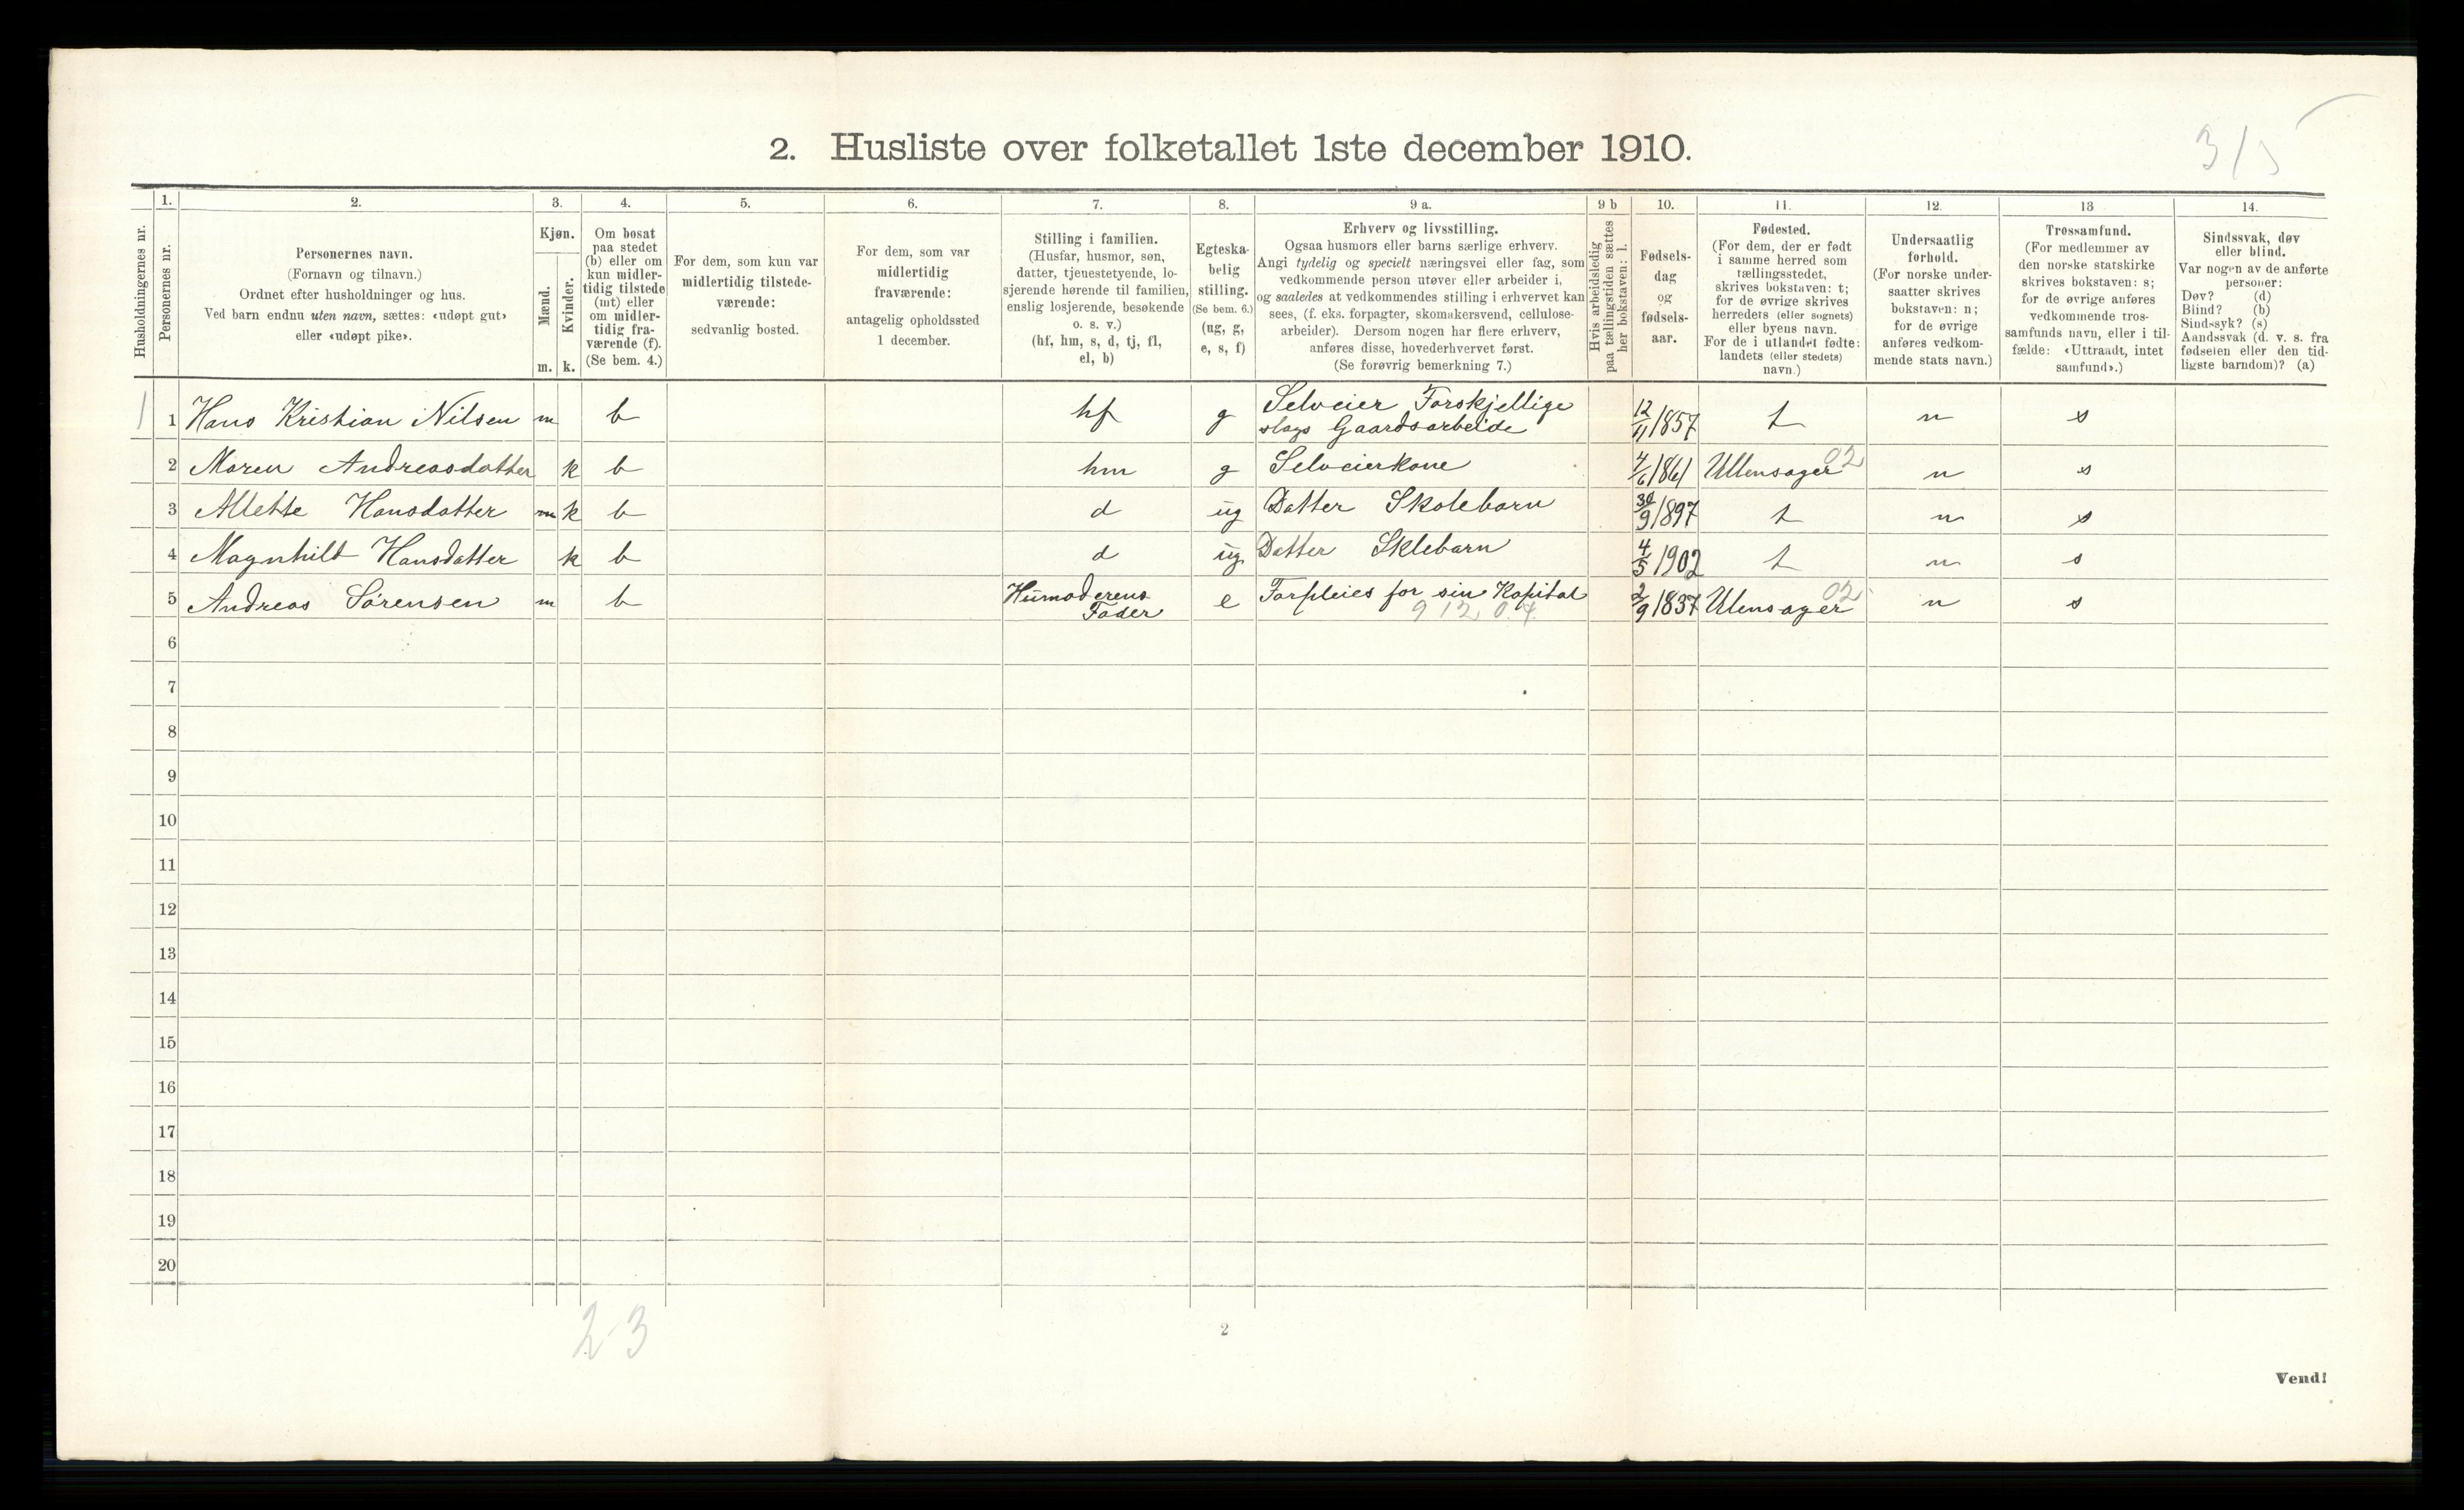 2. Husliste over folketallet 1ste december 1910.
3/5
Husholdningernes nr.
1. Personernes nr.
2.
Personernes navn.
(Fornavn og tilnavn.)
Ordnet efter husholdninger og hus.
Ved barn endnu uten navn, sættes: «udøpt gut»
eller «udøpt pike».
3.
Kjøn.
Mænd. m.
Kvinder. k.
4.
Om bosat
paa stedet
(b) eller om
kun midler-
tidig tilstede
(mt) eller
om midler-
tidig fra-
værende (f).
(Se bem. 4.)
5.
For dem, som kun var
midlertidig tilstede-
værende:
sedvanlig bosted.
6.
For dem, som var
midlertidig
fraværende:
antagelig opholdssted
1 december.
7.
Stilling i familien.
(Husfar, husmor, søn,
datter, tjenestetyende, lo-
sjerende hørende til familien,
enslig losjerende, besøkende
o. s. v.)
(hf, hm, s, d, tj, fl,
el, b)
8.
Egteska-
belig
stilling.
(Se bem. 6.)
(ug, g,
e, s, f)
9 a.
Erhverv og livsstilling.
Ogsaa husmors eller barns særlige erhverv.
Angi tydelig og specielt næringsvei eller fag, som
vedkommende person utøver eller arbeider i,
og saaledes at vedkommendes stilling i erhvervet kan
sees, (f. eks. forpagter, skomakersvend, cellulose-
arbeider). Dersom nogen har flere erhverv,
anføres disse, hovederhvervet først.
(Se forøvrig bemerkning 7.)
9 b
Hvis arbeidsledig
paa tællingstiden sættes
her bokstaven: l.
10.
Fødsels-
dag
og
fødsels-
aar.
11.
Fødested.
(For dem, der er født
i samme herred som
tællingsstedet,
skrives bokstaven: t;
for de øvrige skrives
herredets (eller sognets)
eller byens navn.
For de i utlandet fødte:
landets (eller stedets)
navn.)
12.
Undersaatlig
forhold.
(For norske under-
saatter skrives
bokstaven: n;
for de øvrige
anføres vedkom-
mende stats navn.)
13
Trossamfund.
(For medlemmer av
den norske statskirke
skrives bokstaven: s;
for de øvrige anføres
vedkommende tros-
samfunds navn, eller i til-
fælde: «Uttraadt, intet
samfund».)
14.
Sindssvak, døv
eller blind.
Var nogen av de anførte
personer:
Døv? (d)
Blind? (b)
Sindssyk? (s)
Aandssvak (d. v. s. fra
fødselen eller den tid-
ligste barndom)? (a)
1 1 Hans Kristian Nilsen m b hf g Selveier Forskjellige
slags Gaardsarbeide 12/11 1857 t n s
2 Maren Andreasdatter k b hm g Selveierkone 4/6 1861 Ullensager 02 n s
3 Alette Hansdatter m k b d ug Datter Skolebarn 30/9 1897 t n s
4 Magnhild Hansdatter k b d ug Datter Sklebarn 4/5 1902 t n s
5 Andreas Sørensen m b Humoderens
Fader e Forpleies for sin Kapital 2/9 1837 Ulensager 02 n s
9 12 0 4
6
7
8
9
10
11
12
13
14
15
16
17
18
19
20
2 3
2
Vend!